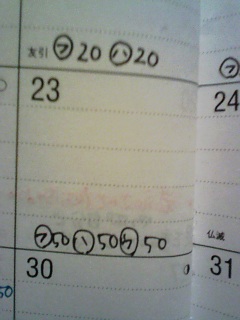 友引 ㋫20 ㋩20
23
24
㋫50 ㋩50 ㋒50
仏滅
30
31
50